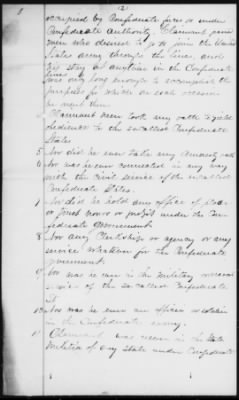 (2)
occupied by Confederate forces or under
Confederate Authority. Claimant
men who desired to go join the United
States army through the lines and
his stay at anytime in the Confederate
lines
was only long enough to accomplish the
purpose for which on each occasion
he went there
4 Claimant never took any oath
to the so called Confederate
States
5 Nor did he ever take any Amnesty oath
6 Nor was he ever connected in any way
with the civil service of the so called
Confederate States.
7 Nor did he hold any office of place
or trust honor or profit under the Con-
federate Government
8 Nor any Clerkship or agency or any
service whatever for the Confederate
government.
9 Nor was he ever in the Military or naval
service of the so called Confederate
10 Nor was he ever an officer or
in the Confederate army.
11 Claimant was never in the State
Militia of any State under Confederate